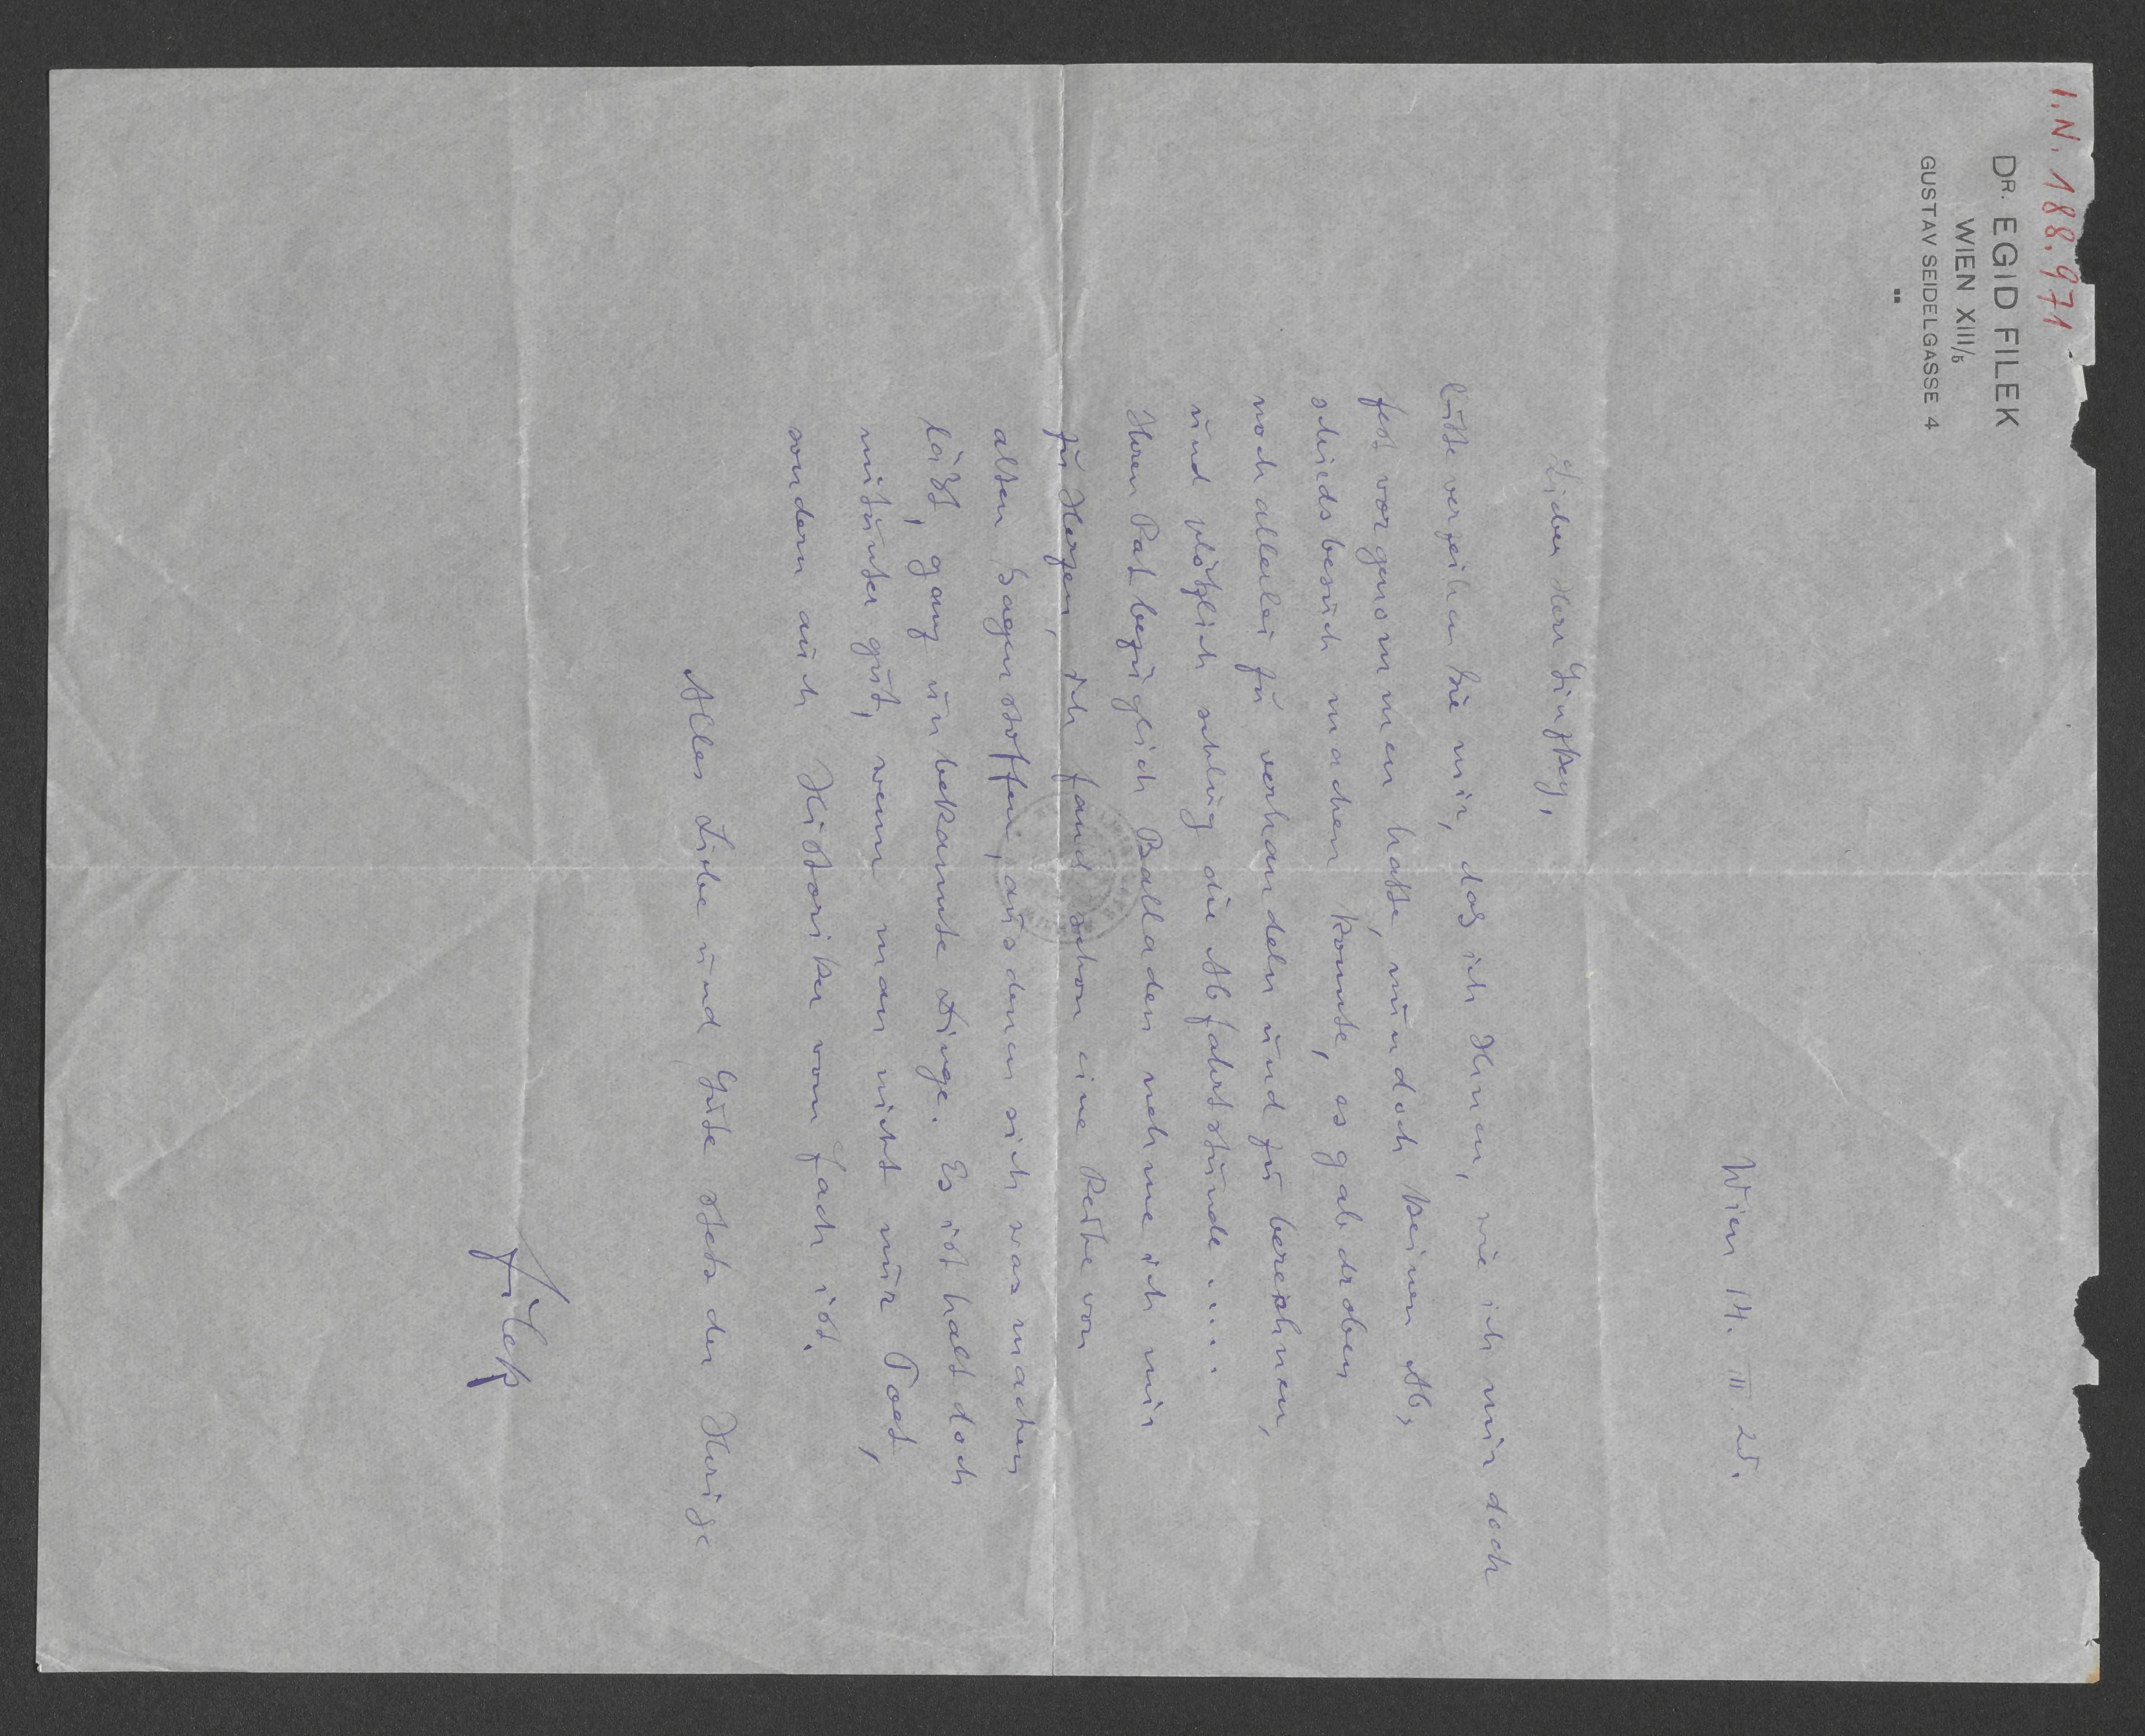 I.N. 188.971
DR. EGID FILEK
WIEN XIII/5
GUSTAV SEIDELGASSE 4
Wien 14. II. 25.
Lieber Herr
bitte verzeihen Sie mir, daß ich Ihnen, wie ich mir doch
fest vorgenommen hatte, nun doch keinen Ab-
schiedsbesuch machen konnte, es gab droben
noch allerlei zu verhandeln und zu berechnen,
und plötzlich schlug die Abfahrtstunde ....
Ihren Rat bezüglich Balladen nehme ich mir
zu Herzen, ich fand schon eine Reihe von
alten Sagenstoffen, aus denen sich was machen
läßt, ganz unbekannte Dinge. Es ist halt doch
mitunter gut, wenn man nicht nur Poet,
sondern auch Historiker vom Fach ist.
Alles Liebe und Gute stets der Ihrige
Filek